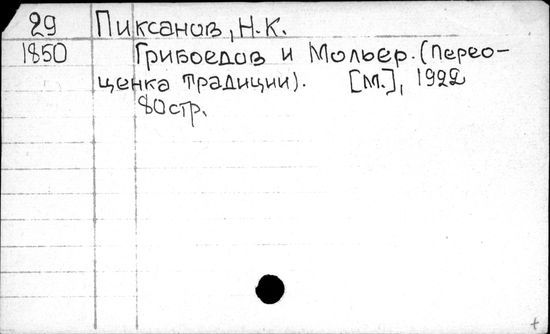 29 Пиксанов, Н.К.
1850 Грибоедов и Мольер. (Перео-
ценка традиции). [М.], 1922
80стр.